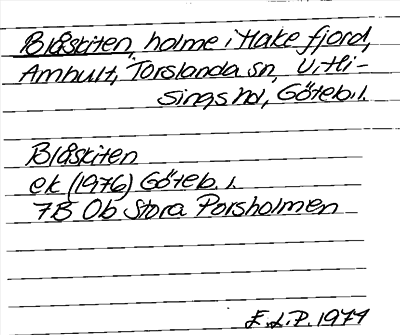 Blåskiten, holme i Hake fjord,
Amhult, Torslanda sn, V. Hi-
sings hd, Göteb. l.
Blåskiten
ek (1976) Göteb. l.
7B 0b Stora Porsholmen
E.J.P. 1977